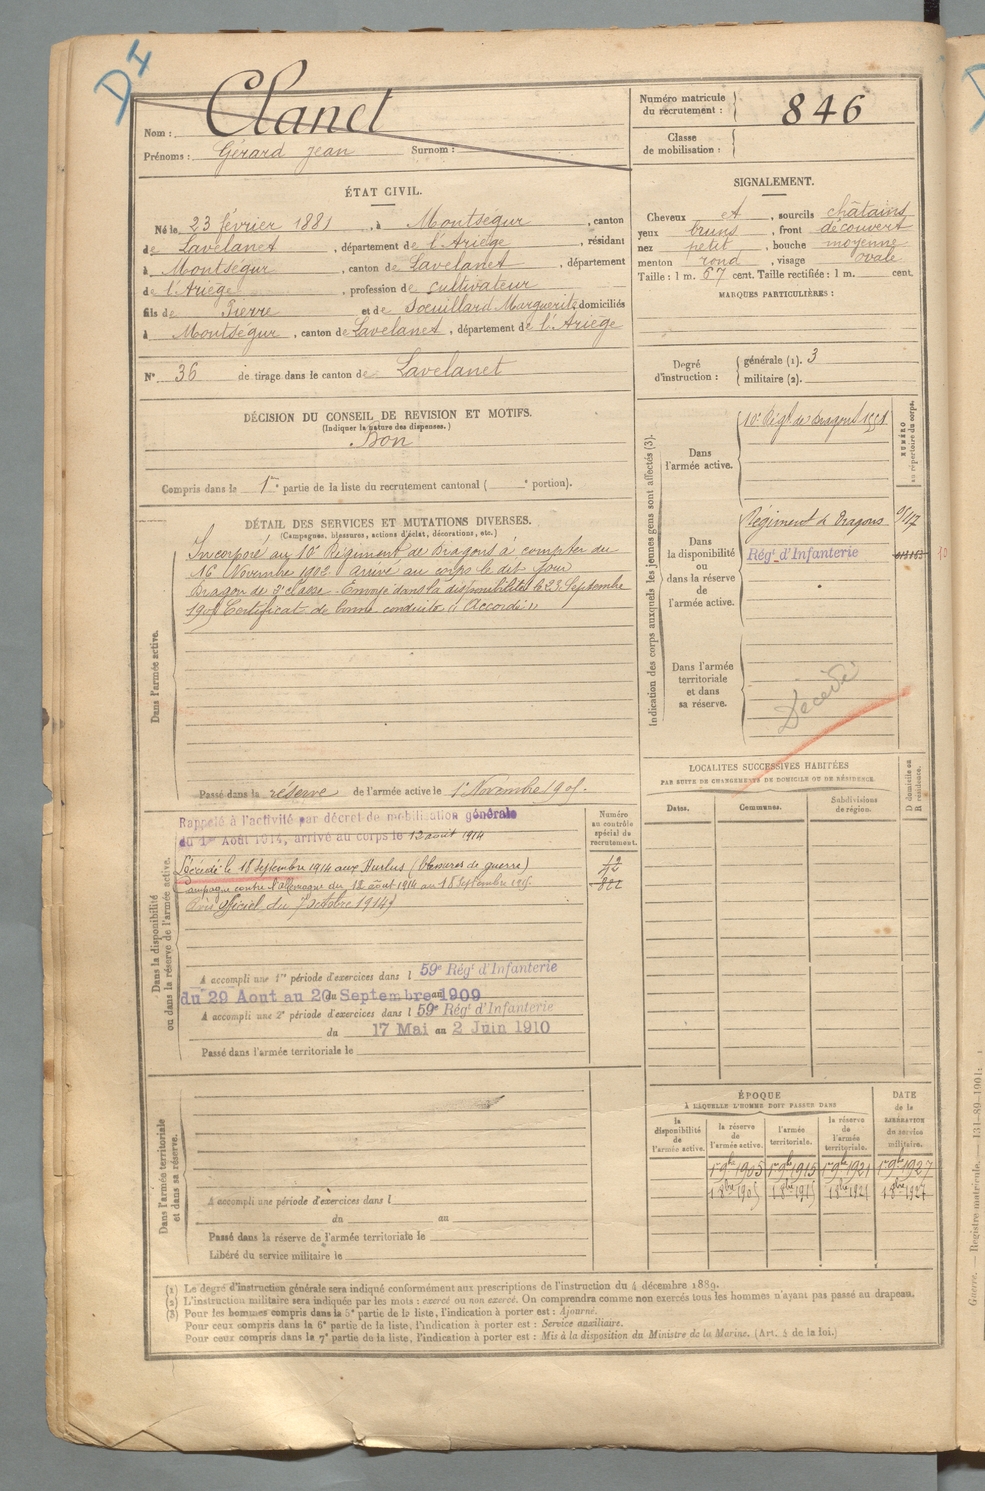 D I
Clanet
Nom :
Prénoms : Gérard Jean Surnom :
Numéro matricule du recrutement : 846
Classe de mobilisation :
ÉTAT CIVIL.
Né le 23 février 1881, à Montségur, canton
de Lavelanet, département de l'Ariège, résidant
à Montségur, canton de Lavelanet, département
de l'Ariège, profession de cultivateur
fils de Pierre et de Marguerite, domiciliés
à Montségur, canton de Lavelanet, département de l'Ariège
N° 36 de tirage dans le canton de Lavelanet
SIGNALEMENT.
Cheveux et, sourcils châtains
yeux bruns, front découvert
nez petit, bouche moyenne
menton rond, visage ovale
Taille : 1 m. 67 cent. Taille rectifiée : 1 m. cent.
MARQUES PARTICULIÈRES :
Degré d'instruction :
générale (1). 3
militaire (2).
DÉCISION DU CONSEIL DE REVISION ET MOTIFS.
(Indiquer la nature des dispenses.)
Bon
Compris dans la 1re partie de la liste du recrutement cantonal ( e portion).
DÉTAIL DES SERVICES ET MUTATIONS DIVERSES.
(Campagnes, blessures, actions d'éclat, décorations, etc.)
Dans l'armée active.
Incorporé au 10e Régiment de Dragons à compter du
16 Novembre 1902. Arrivé au corps le dit jour
Dragon de 2e classe. Envoyé dans la disponibilité le 23 Septembre
1905 Certificat de bonne conduite "Accordé"
Passé dans la réserve de l'armée active le 1er Novembre 1905.
Indication des corps auxquels les jeunes gens sont affectés (3).
NUMÉRO au répertoire du corps.
Dans l'armée active.
10e Régt de Dragons
Dans la disponibilité ou dans la réserve de l'armée active.
Régiment de Dragons
Régt d'Infanterie
Dans l'armée territoriale et dans sa réserve.
Décédé
Dans la disponibilité ou dans la réserve de l'armée active.
Numéro au contrôle spécial de recrutement.
Rappelé à l'activité par décret de mobilisation générale
du 1er Août 1914, arrivé au corps le 12 août 1914
Décédé le 18 septembre 1914 aux Hurlus (blessures de guerre)
Campagne contre l'Allemagne du 12 août 1914 au 18 septembre
Avis officiel du 7 octobre 1914
A accompli une 1re période d'exercices dans l 59e Régt d'Infanterie
du 29 Aout au 20 Septembre 1909
A accompli une 2e période d'exercices dans l 59e Régt d'Infanterie
du 17 Mai au 2 Juin 1910
Passé dans l'armée territoriale le
LOCALITÉS SUCCESSIVES HABITÉES
PAR SUITE DE CHANGEMENTS DE DOMICILE OU DE RÉSIDENCE.
Dates.
Communes.
Subdivisions de région.
D domicile ou R résidence.
Dans l'armée territoriale et dans sa réserve.
A accompli une période d'exercices dans l
du au
Passé dans la réserve de l'armée territoriale le
Libéré du service militaire le
ÉPOQUE
À LAQUELLE L'HOMME DOIT PASSER DANS
DATE de la LIBÉRATION du service militaire.
la disponibilité de l'armée active.
la réserve de l'armée active.
l'armée territoriale.
la réserve de l'armée territoriale.
1er 9bre 1905 1er 9bre 1915 1er 9bre 1921 1er 9bre 1927
(1) Le degré d'instruction générale sera indiqué conformément aux prescriptions de l'instruction du 4 décembre 1889.
(2) L'instruction militaire sera indiquée par les mots : exercé ou non exercé. On comprendra comme non exercés tous les hommes n'ayant pas passé au drapeau.
(3) Pour les hommes compris dans la 5e partie de la liste, l'indication à porter est : Ajourné.
Pour ceux compris dans la 6e partie de la liste, l'indication à porter est : Service auxiliaire.
Pour ceux compris dans la 7e partie de la liste, l'indication à porter est : Mis à la disposition du Ministre de la Marine. (Art. 4 de la loi.)
Guerre. — Registre matricule. — 131-89-1901.